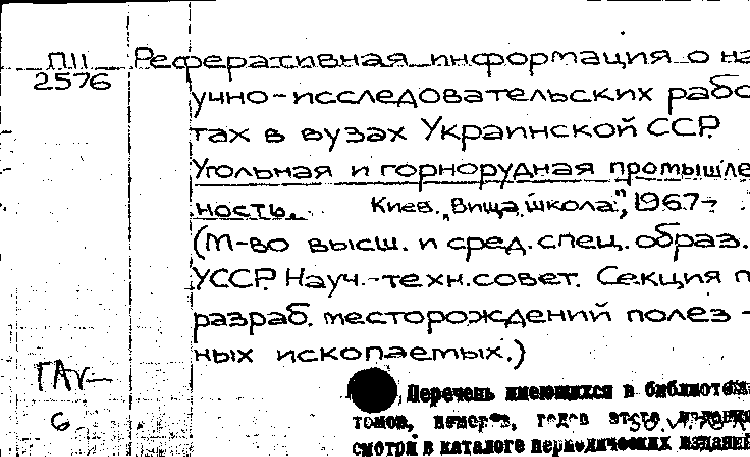 П11 Реферативная информация о на
2576 учно-исследовательских рабо
тах в вузах Украинской ССР.
Угольная и горнорудная промышле
ность. Киев, „Вища школа", 1967-
(М-во высш. и сред. спец. образ.
УССР. Науч.-техн. совет. Секция п
разраб. месторождений полез-
ных ископаемых.)
6
Перечень имеющихся в библиотек
томов, номеров, годов этого издания
смотри в каталоге периодических изданий